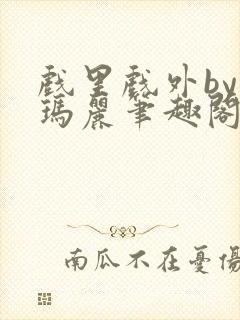 戲里戲外by
瑪麗筆趣閣
南瓜不在憂傷